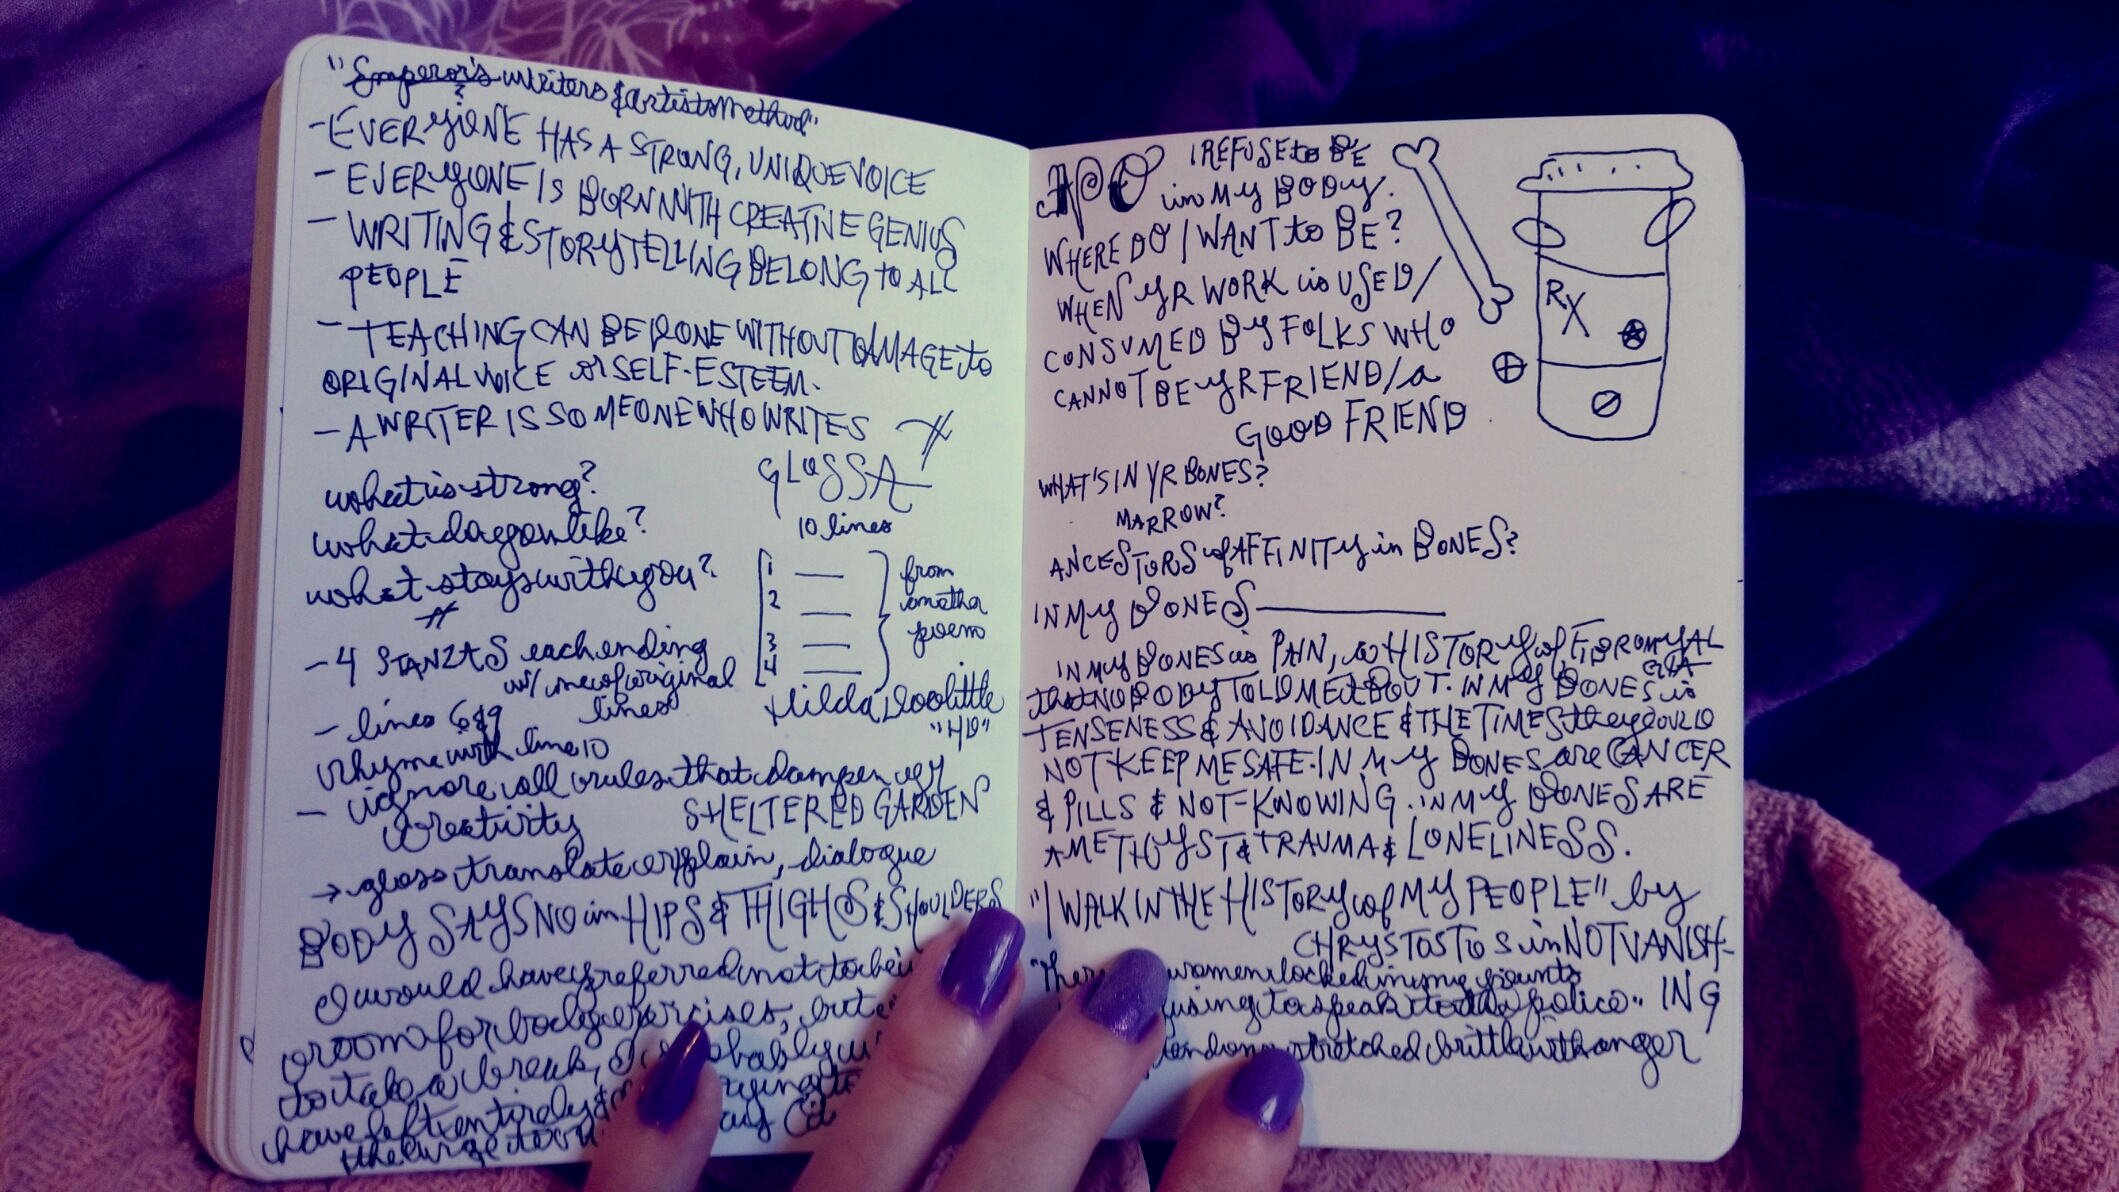 "Emperor's writers & artists method"
- EVERYONE HAS A STRONG, UNIQUE VOICE
- EVERYONE IS BORN WITH CREATIVE GENIUS
- WRITING & STORYTELLING BELONG to ALL
PEOPLE
- TEACHING CAN BE DONE WITHOUT DAMAGE to
ORIGINAL VOICE or SELF-ESTEEM.
- A WRITER IS SOMEONE WHO WRITES #
what is strong?
what do you like?
what stays with you?
#
GLOSSA
10 lines
1
2
3
4
from
another
poem
Hilda Doolittle
"HD"
- 4 STANZAS each ending
w/ one of original
lines
- lines 6 & 9
rhyme with line 10
- ignore all rules that dampen yr
creativity
SHELTERED GARDEN
→ gloss, translate, explain, dialogue
BODY SAYS NO in HIPS & THIGHS & SHOULDERS
I would have preferred not to be in
room for body exercises, but
to take a break, I probably
have left entirely & trying to
the urge to
APO I REFUSE to BE
in MY BODY.
WHERE DO I WANT to BE?
WHEN YR WORK is USED/
CONSUMED BY FOLKS WHO
CANNOT BE YR FRIEND/a
GOOD FRIEND
RX
WHAT'S IN YR BONES?
MARROW?
ANCESTORS of AFFINITY in BONES?
IN MY BONES
IN MY BONES is PAIN, a HISTORY of FIBROMYAL
GIA
that NOBODY TOLD ME ABOUT. IN MY BONES is
TENSENESS & AVOIDANCE & THE TIMES they COULD
NOT KEEP ME SAFE. IN MY BONES are CANCER
& PILLS & NOT-KNOWING. IN MY BONES ARE
AMETHYST & TRAUMA & LONELINESS.
"I WALK IN THE HISTORY of MY PEOPLE" by
CHRYSTOSTOS in NOT VANISH-
ING
"There women locked in my joints
refusing to speak to the police"
tendons stretched brittle with anger